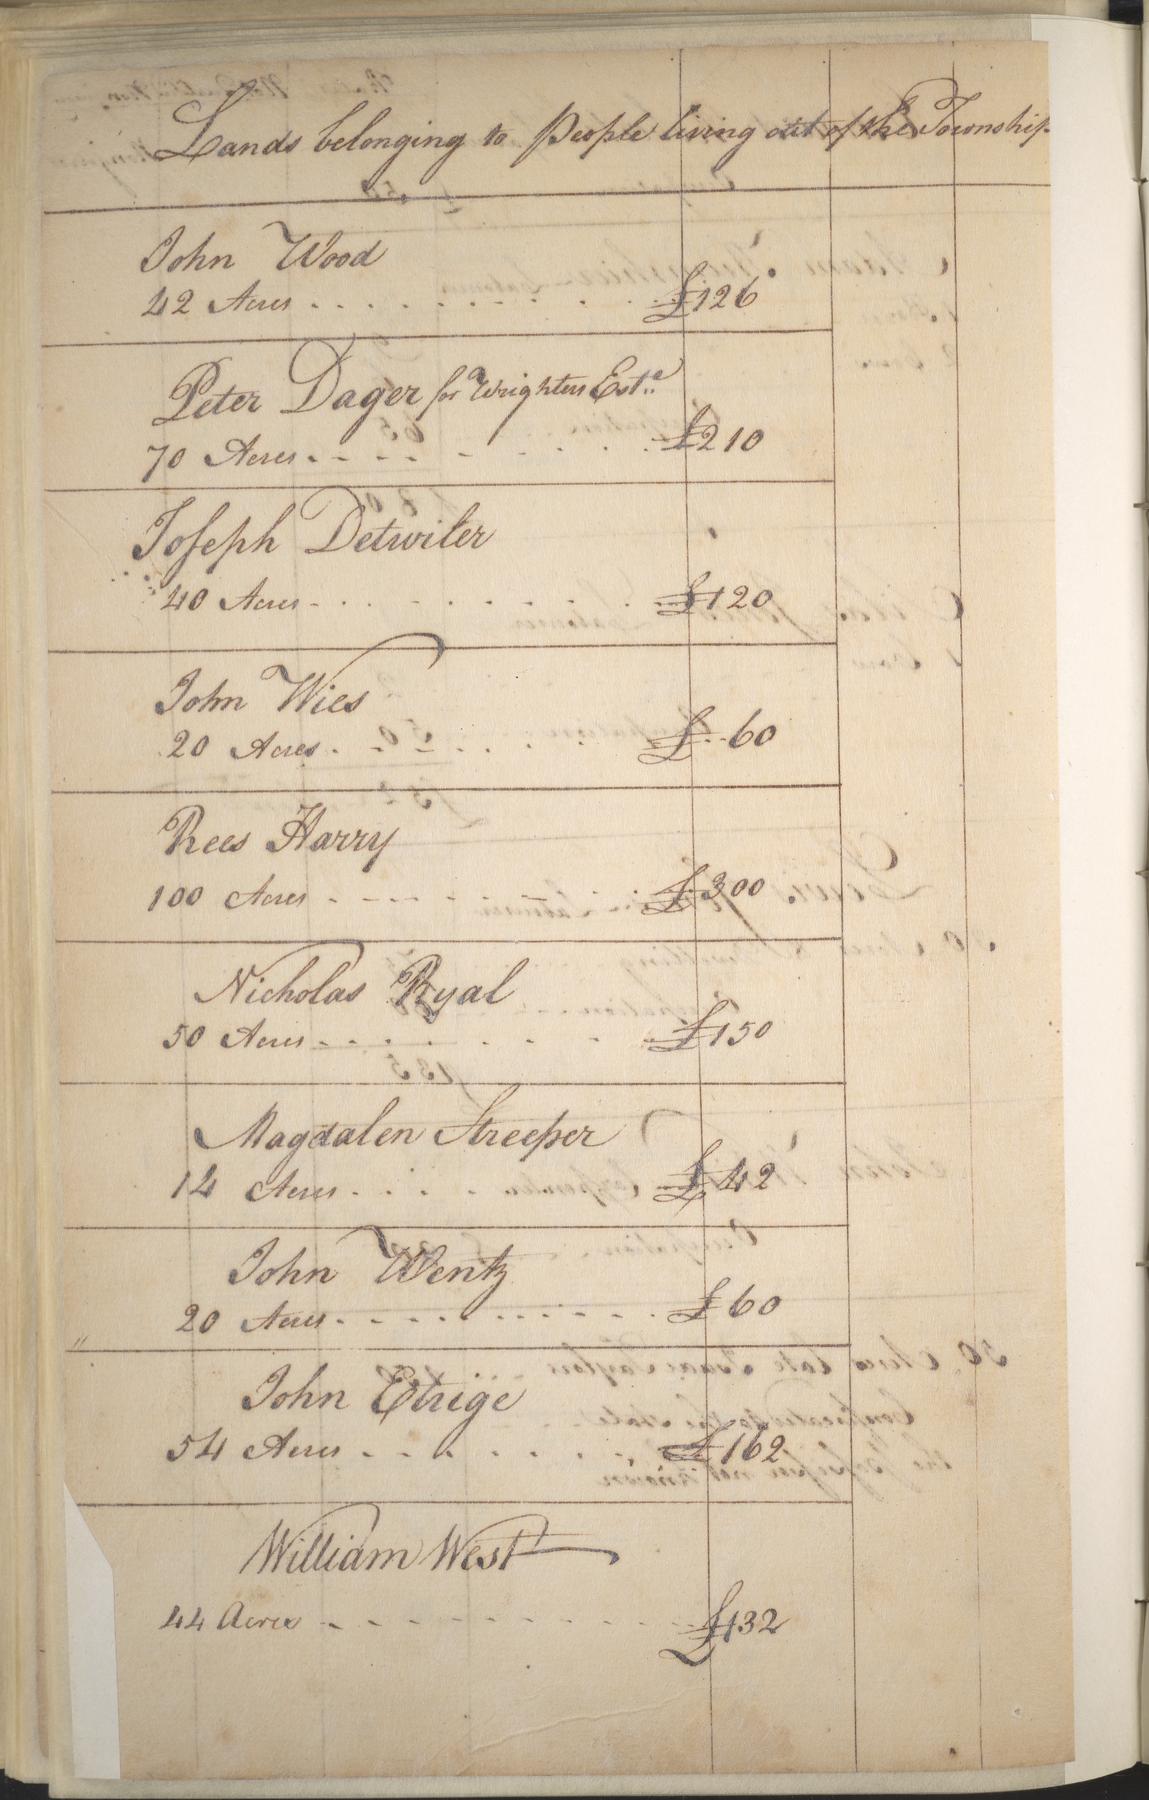 Lands belonging to People living out of the Township
John Wood
42 Acres . . . . . . . . . £126
Peter Dager for Wrighters Est.e
70 Acres . - - - - - . . . £210
Joseph Detwiler
40 Acres - . . . - . . . . £120
John Wies
20 Acres . - - - . . . . . £ . . 60
Rees Harry
100 Acres - - - - - . . . £300
Nicholas Ryal
50 Acres - - . . . . - - - £150
Magdalen Streeper
14 Acres . . . . . . £42
John Wentz
20 Acres . - - - - - - - - . £60
John Etrige
54 Acres - - - - - - - - £162
William West
44 Acres - - - - - - - - - - £132